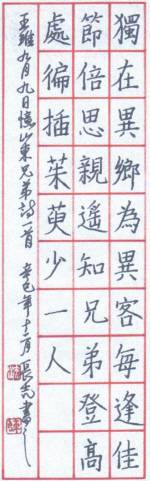 獨在異鄉為異客每逢佳
節倍思親遙知兄弟登高
處徧插茱萸少一人
王維九月九日憶山東兄弟詩一首 辛巳年十二月 長